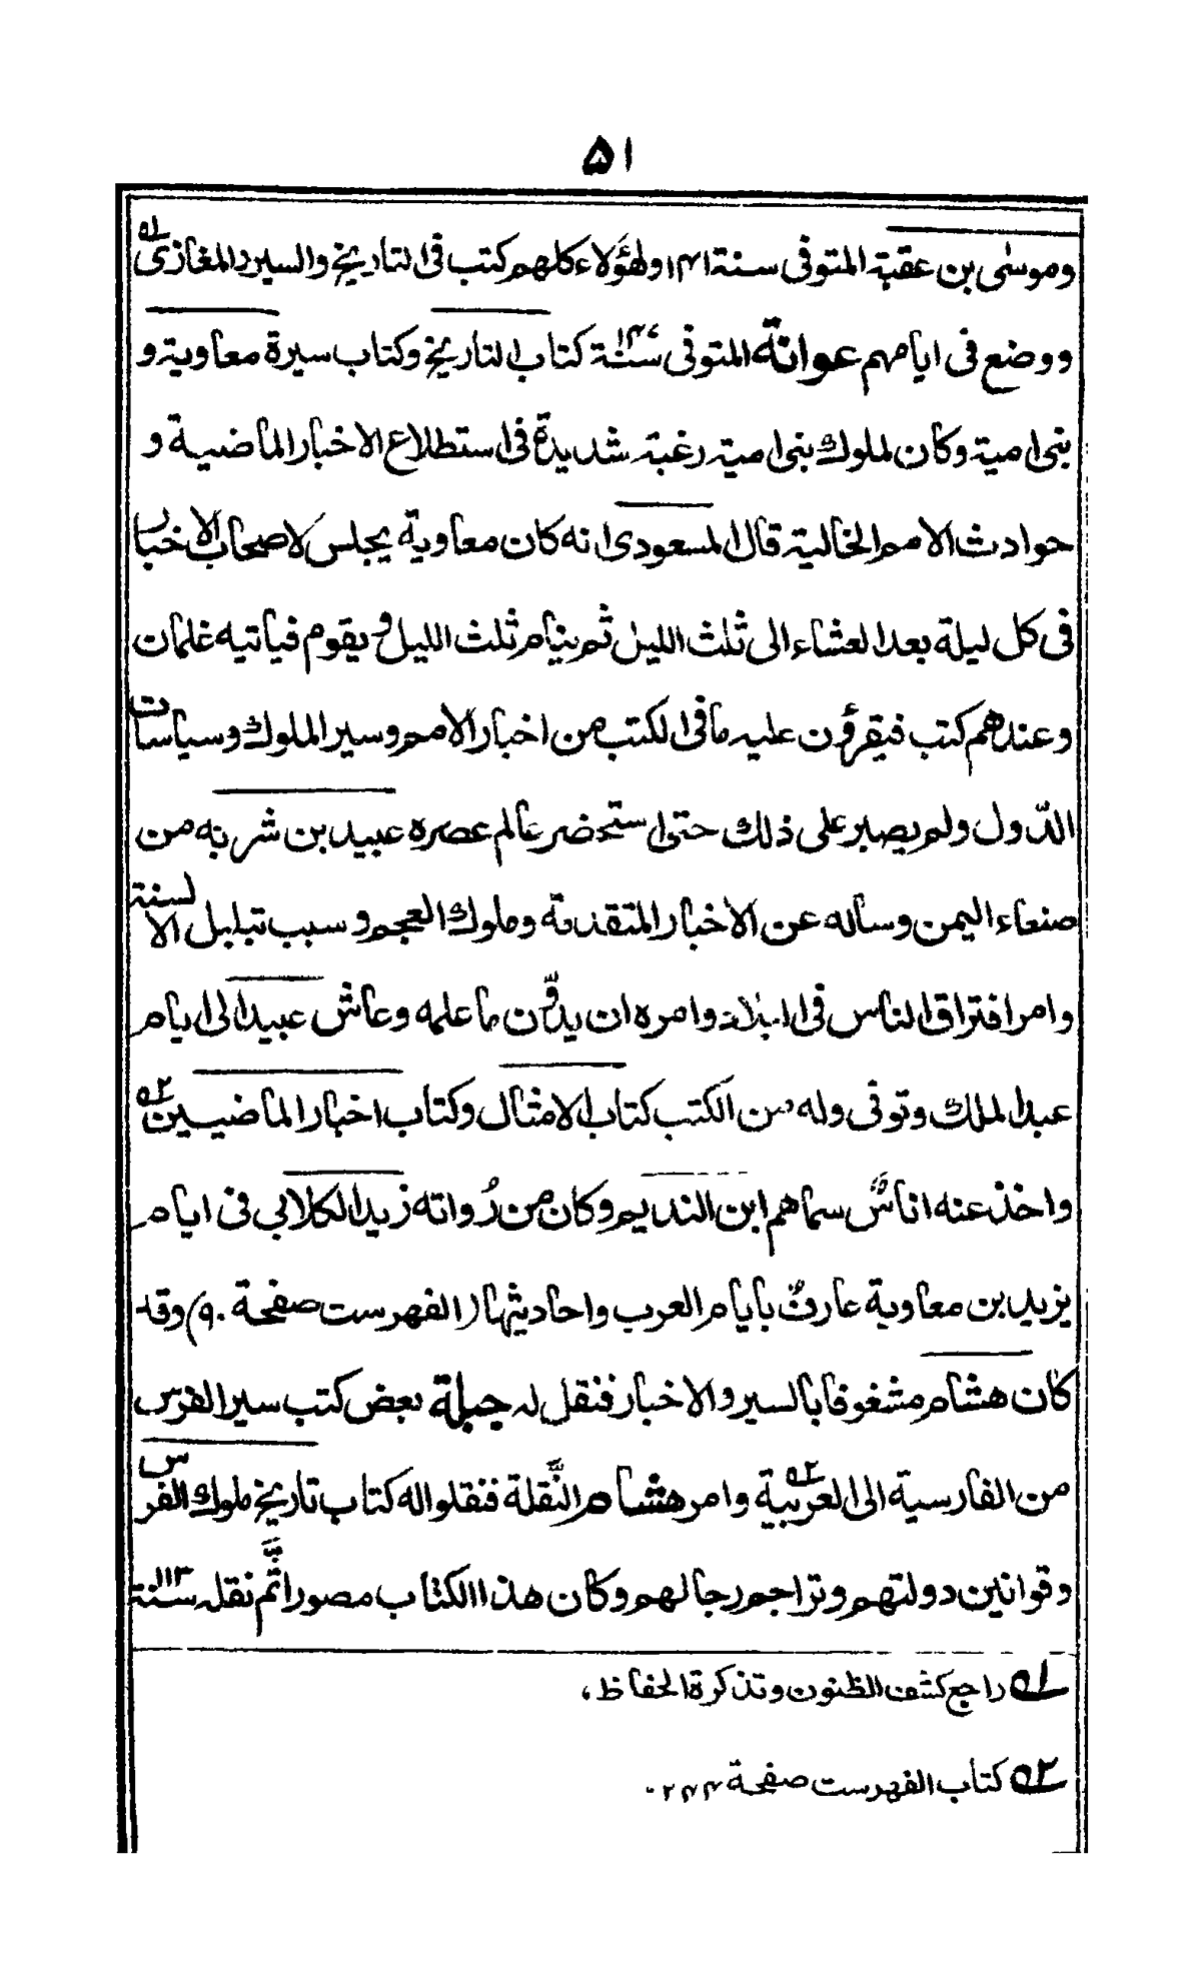 ۵۱
وموسٰی بن عقبة المتوفی سنة ۱۴۱ ولهؤلاء کلهم کتب فی التاریخ والسیر والمغازی ۱ه
ووضع فی ایامهم عوانة المتوفی سنة ۱۴۷ کتاب التاریخ وکتاب سیرة معاویة و
بنی امیة وکان لملوك بنی امیة رغبة شدیدة فی استطلاع الاخبار الماضیة و
حوادث الامم الخالیة قال المسعودی انه کان معاویة یجلس لاصحاب الاخبار
فی کل لیلة بعد العشاء الی ثلث اللیل ثم ینام ثلث اللیل و یقوم فیاتیه غلمان
وعندهم کتب فیقرؤن علیه ما فی الکتب من اخبار الامم وسیر الملوك وسیاسات
الدّول ولم یصبر علی ذلك حتی استحضر عالم عصره عبید بن شریه من
صنعاء الیمن وسأله عن الاخبار المتقدمة وملوك العجم و سبب تبلبل الالسنة
وامر افتراق الناس فی البلاد وامره ان یدوّن ما علمه وعاش عبید الی ایام
عبد الملك وتوفی وله من الکتب کتاب الامثال وکتاب اخبار الماضیین ۲ه
واخذ عنه اناسٌ سماهم ابن الندیم وکان من رُواته زید الکلابی فی ایام
یزید بن معاویة عارفٌ بأیام العرب واحادیثها (الفهرست صفحة ۹۰) وقد
کان هشام مشغوفا بالسیر والاخبار فنقل له جبلة بعض کتب سیر الفرس
من الفارسیة الی العربیة ۲ه وامر هشام النَّقلة فنقلوا له کتاب تاریخ ملوك الفرس
وقوانین دولتهم وتراجم رجالهم وکان هذا الکتاب مصورا تَّم نقله سنة ۱۱۳
۱ه راجع کشف الظنون وتذکرة الحفاظ،
۲ه کتاب الفهرست صفحة ۲۴۴.